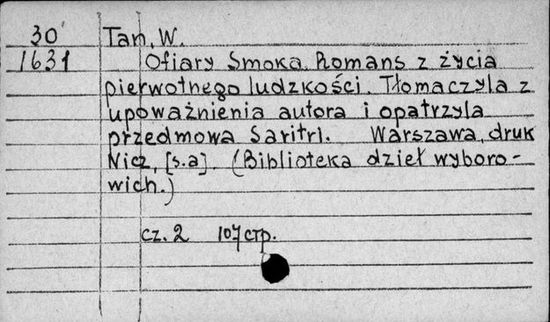 30 Tan, W.
1631 Ofiary Smoka. Romans z życia
pierwotnego ludzkości. Tłomaczyla z
upoważnienia autora i opatrzyla
przedmowa Saritri. Warszawa, druk
Nicz, [s.a]. (Biblioteka dzieł wyboro-
wich.)
cz. 2 107 стр.